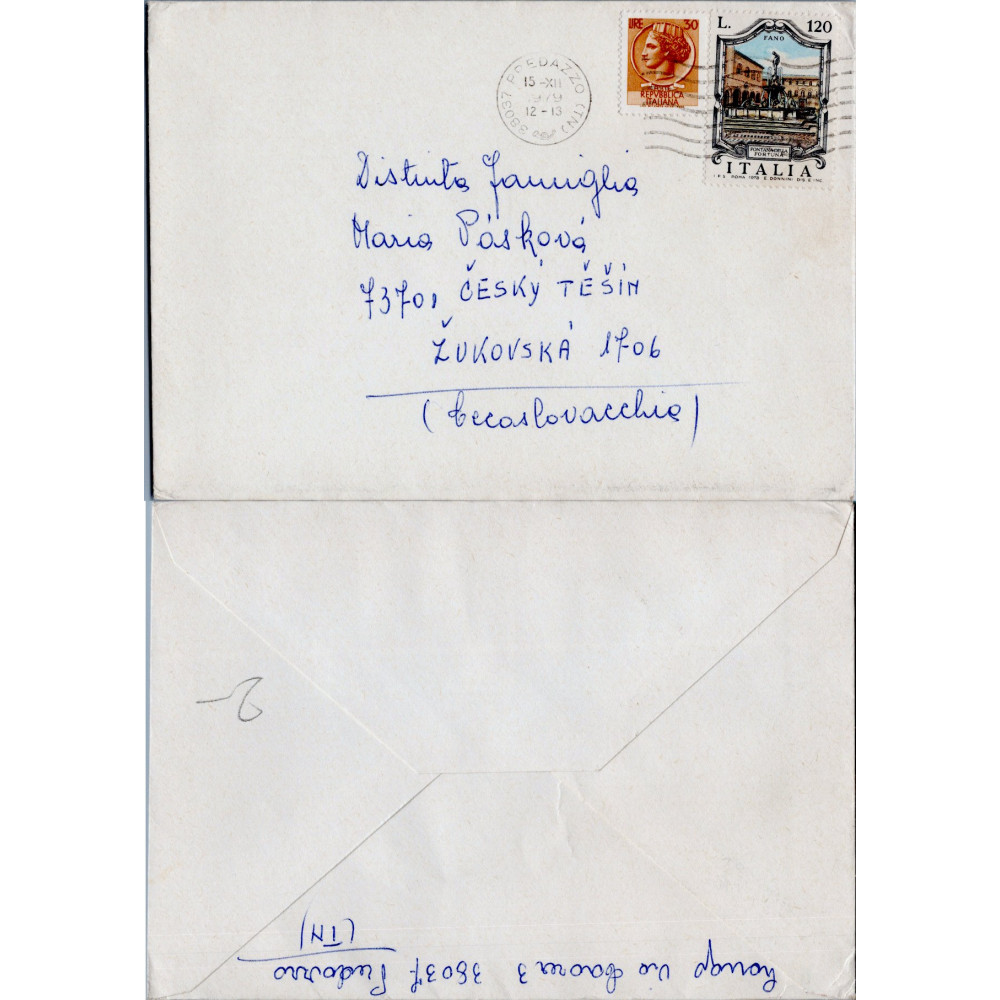 38037 PREDAZZO (TN)
15-XII
1979
12-13
LIRE 30
REPVBBLICA
ITALIANA
L. 120
FANO
FONTANA DELLA
FORTUNA
ITALIA
I.P.S. ROMA 1978 E. DONNINI DIS. E INC.
Distinta Famiglia
Maria Pásková
73701 ČESKÝ TĚŠÍN
ŽUKOVSKÁ 1706
(Cecoslovacchia)
via 3 38037 Predazzo
(TN)